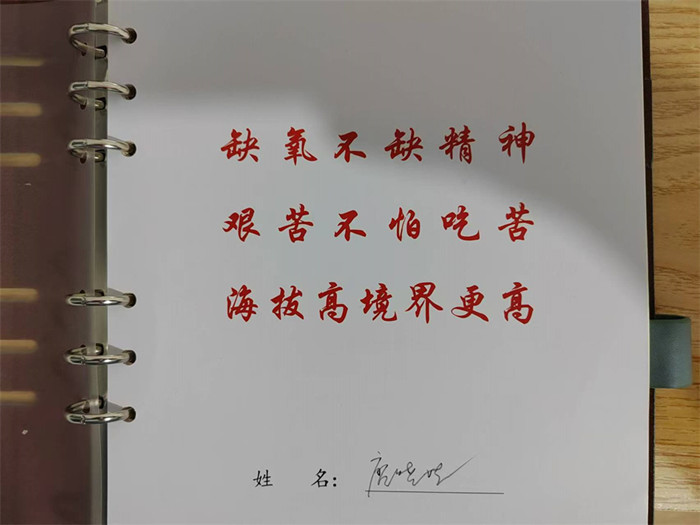 缺氧不缺精神
艰苦不怕吃苦
海拔高境界更高
姓 名：唐晓晓